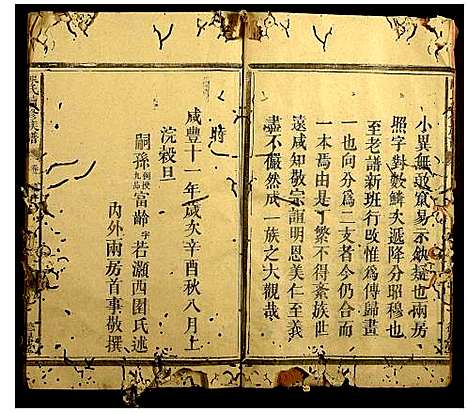 小異無敢竄易示缺疑也兩房
照字對數鱗次遞降分昭穆也
至老譜新班行改惟爲傳歸畫
一也向分爲二支者今仍合而
一本焉由是丁繁不得紊族世
遠咸知敬宗誼明恩美仁至義
盡不儼然成一族之大觀哉
時
咸豐十一年歲次辛酉秋八月上
浣穀旦
嗣孫富齡字若灝西園氏述
內外兩房首事敬撰